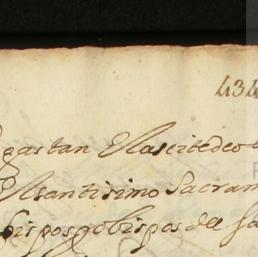 434
gastan El aseite de o
El santisimo Sacram
bispos y obispos de la sa